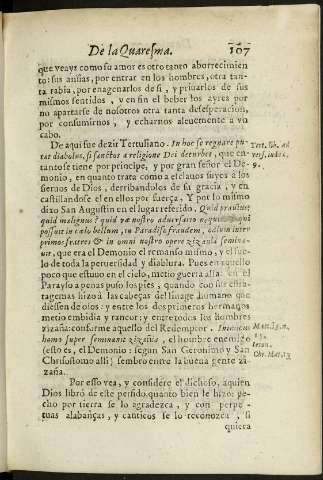 De la Quaresma. 107
que veays como su amor es otro tanto aborrecimien
to: sus ansias, por entrar en los hombres, otra tan-
ta rabia, por enagenarlos de si, y priuarlos de sus
mismos sentidos, y en fin el beber los ayres por
no apartarse de nosotros otra tanta desesperacion,
por consumirnos, y echarnos aleuemente a vo
cabo.
De aqui fue dezir Tertuliano. In hoc se reguare pu-
tat diabolus, si sanctus a religione Dei deturbet, que en-
tanto se tiene por principe, y por gran señor el De-
monio, en quanto trata como a esclauos suyes a los
sieruos de Dios, derribandolos de su gracia, y en
castillandose el en ellos por fuerça, Y por lo mismo
dixo San Augustin en el lugar referido. Quid
quid malignus? quid nostro aduersario
possuit in cælo bellum, in Paradiso fraudem, odium inter
primos fratres & in omni nostro opere zizania semina-
uit, que era el Demonio el remanso mismo, y el sue-
lo de toda la peruersidad y diablura. Pues en aquello
poco que estuuo en el cielo, metio guerra alla: en el
Parayso a penas puso los pies, quando con sus estra-
tagemas hizo à las cabeças del linage humano que
diessen de ojos: y entre los dos primeros hermanos
metio embidia y rancor: y entre todos los hombres
zizaña: conforme aquello del Redemptor. Inimicus
homo super seminauit zizania, el hombre enemigo
(esto es, el Demonio: segun San Geronimo y San
Chrisostomo alli) sembro entre la buena gente zi-
zaña.
Por esso vea, y considere el dichoso, a quien
Dios librò de este persido quanto bien le hizo: pe-
cho por tierra se lo agradezca, y con perpe-
tuas alabanças, y canticos se lo reconozca, si
quiera
Tert. lib. ad
9.
Mat. 13. n.
Ieron.
Chr. Mat. 13